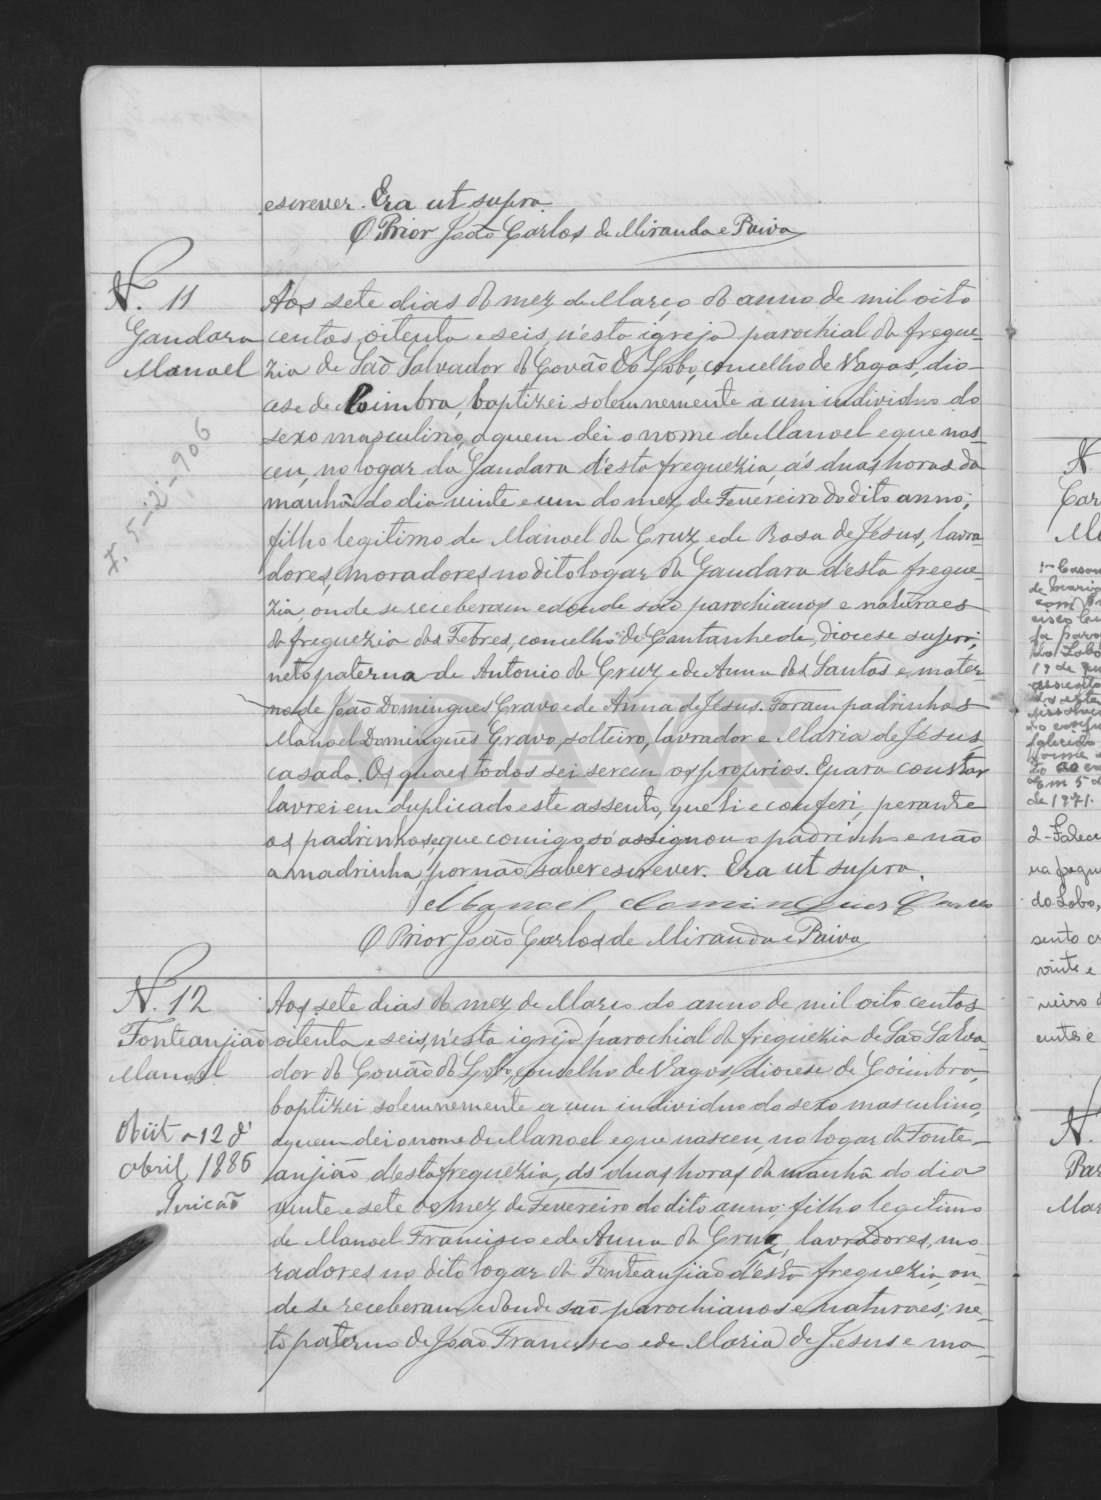 escrever. Era ut supra.
O Prior João Carlos de Miranda e Paiva
N. 11
Gandara
Manoel
F. 5-2-906
Aos sete dias do mez de Março do anno de mil oito
centos oitenta e seis, n'esta igreja parochial da fregue-
zia de São Salvador do Covão do Lobo, concelho de Vagos, dio-
cese de Coimbra, baptizei solemnemente a um individuo do
sexo masculino, a quem dei o nome de Manoel e que nas-
ceu, no logar da Gandara d'esta freguezia, ás duas horas da
manhã do dia vinte e um do mez de Fevereiro do dito anno;
filho legitimo de Manoel da Cruz e de Rosa de Jesus, lavra-
dores, moradores no dito logar da Gandara d'esta fregue-
zia, onde se receberam e donde são parochianos e naturaes
da freguezia das Febres, concelho de Cantanhede, diocese supra;
neto paterna de Antonio da Cruz e de Anna dos Santos e mater-
no de João Domingues Gravo e de Anna de Jesus. Foram padrinhos
Manoel Domingues Gravo, solteiro, lavrador e Maria de Jesus,
casada. Os quaes todos sei serem os proprios. E para constar
lavrei em duplicado este assento, que li e conferi, perante
os padrinhos, que comigo só assignou o padrinho e não
a madrinha, por não saber escrever. Era ut supra.
Manoel Domingues
O Prior João Carlos de Miranda e Paiva
N. 12
Fonteanjião
Manoel
Obiit a 12 d'
Abril 1886
Aos sete dias do mez de Março do anno de mil oito centos
oitenta e seis, n'esta igreja parochial da freguezia de São Salva-
dor do Covão do Lobo, concelho de Vagos, diocese de Coimbra,
baptizei solemnemente a um individuo do sexo masculino,
a quem dei o nome de Manoel e que nasceu, no logar da Fonte-
anjião d'esta freguezia, ás duas horas da manhã do dia
vinte e sete do mez de Fevereiro do dito anno; filho legitimo
de Manoel Francisco e de Anna da Cruz, lavradores, mo-
radores no dito logar da Fonteanjião d'esta freguezia, on-
de se receberam e donde são parochianos e naturaes; ne-
to paterno de João Francisco e de Maria de Jesus e ma-